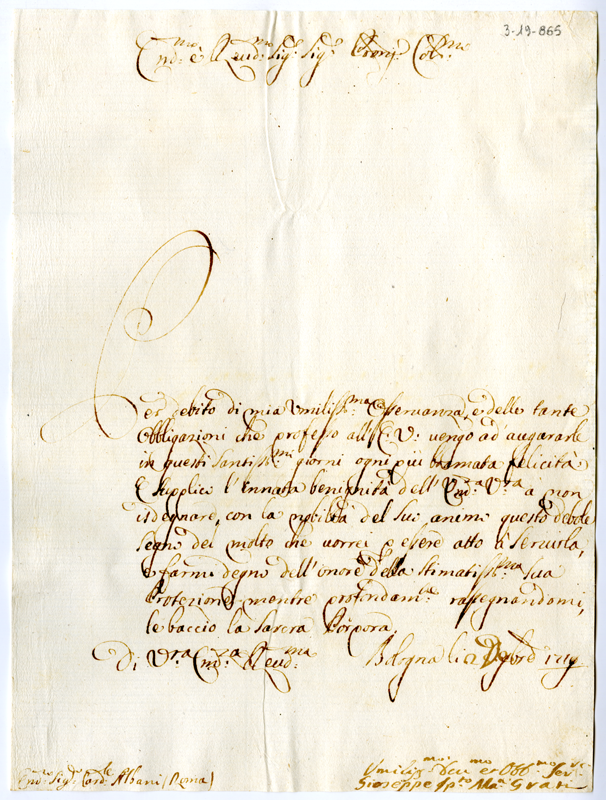 3-19-865
Em.mo e Reud.mo Sig.r Sig.r Pron. Col.mo
Per debito di mia Vmiliss.ma Osseruanza, e delle tante
obbligazioni che professo all'E. V. uengo ad augurarle
in questi Santiss.mi giorni ogni più bramata felicità
E supplico l'Innata benignità dell' Em.za V.ra à non
isdegnare, con la nobiltà del suo animo questo debole
segno del molto che uorrei p essere atto à seruirla,
e farmi degno dell'onore della stimatiss.ma sua
Protezione mentre profondam.te rassegnandomi,
le baccio la Sacra Porpora.
Di V.ra Em.za Reud.ma
Bologna li
Em.mo Sig.r Card.le Albani (Roma)
Vmiliss.mo Deu.mo et Obb.mo Seru.e
Gioseppe Ip.to Ma. Grati